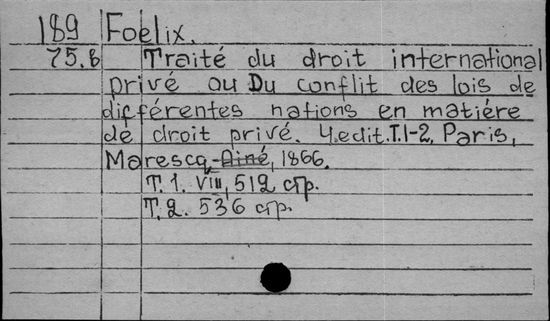 189 Foelix.
75.б Traité du droit international
privé ou Du conflit des lois de
différentes nations en matiére
de droit privé. 4.edit.T.1-2. Paris,
Marescq-Ainé, 1866.
T. 1. VIII, 512 стр.
T. 2. 536 стр.